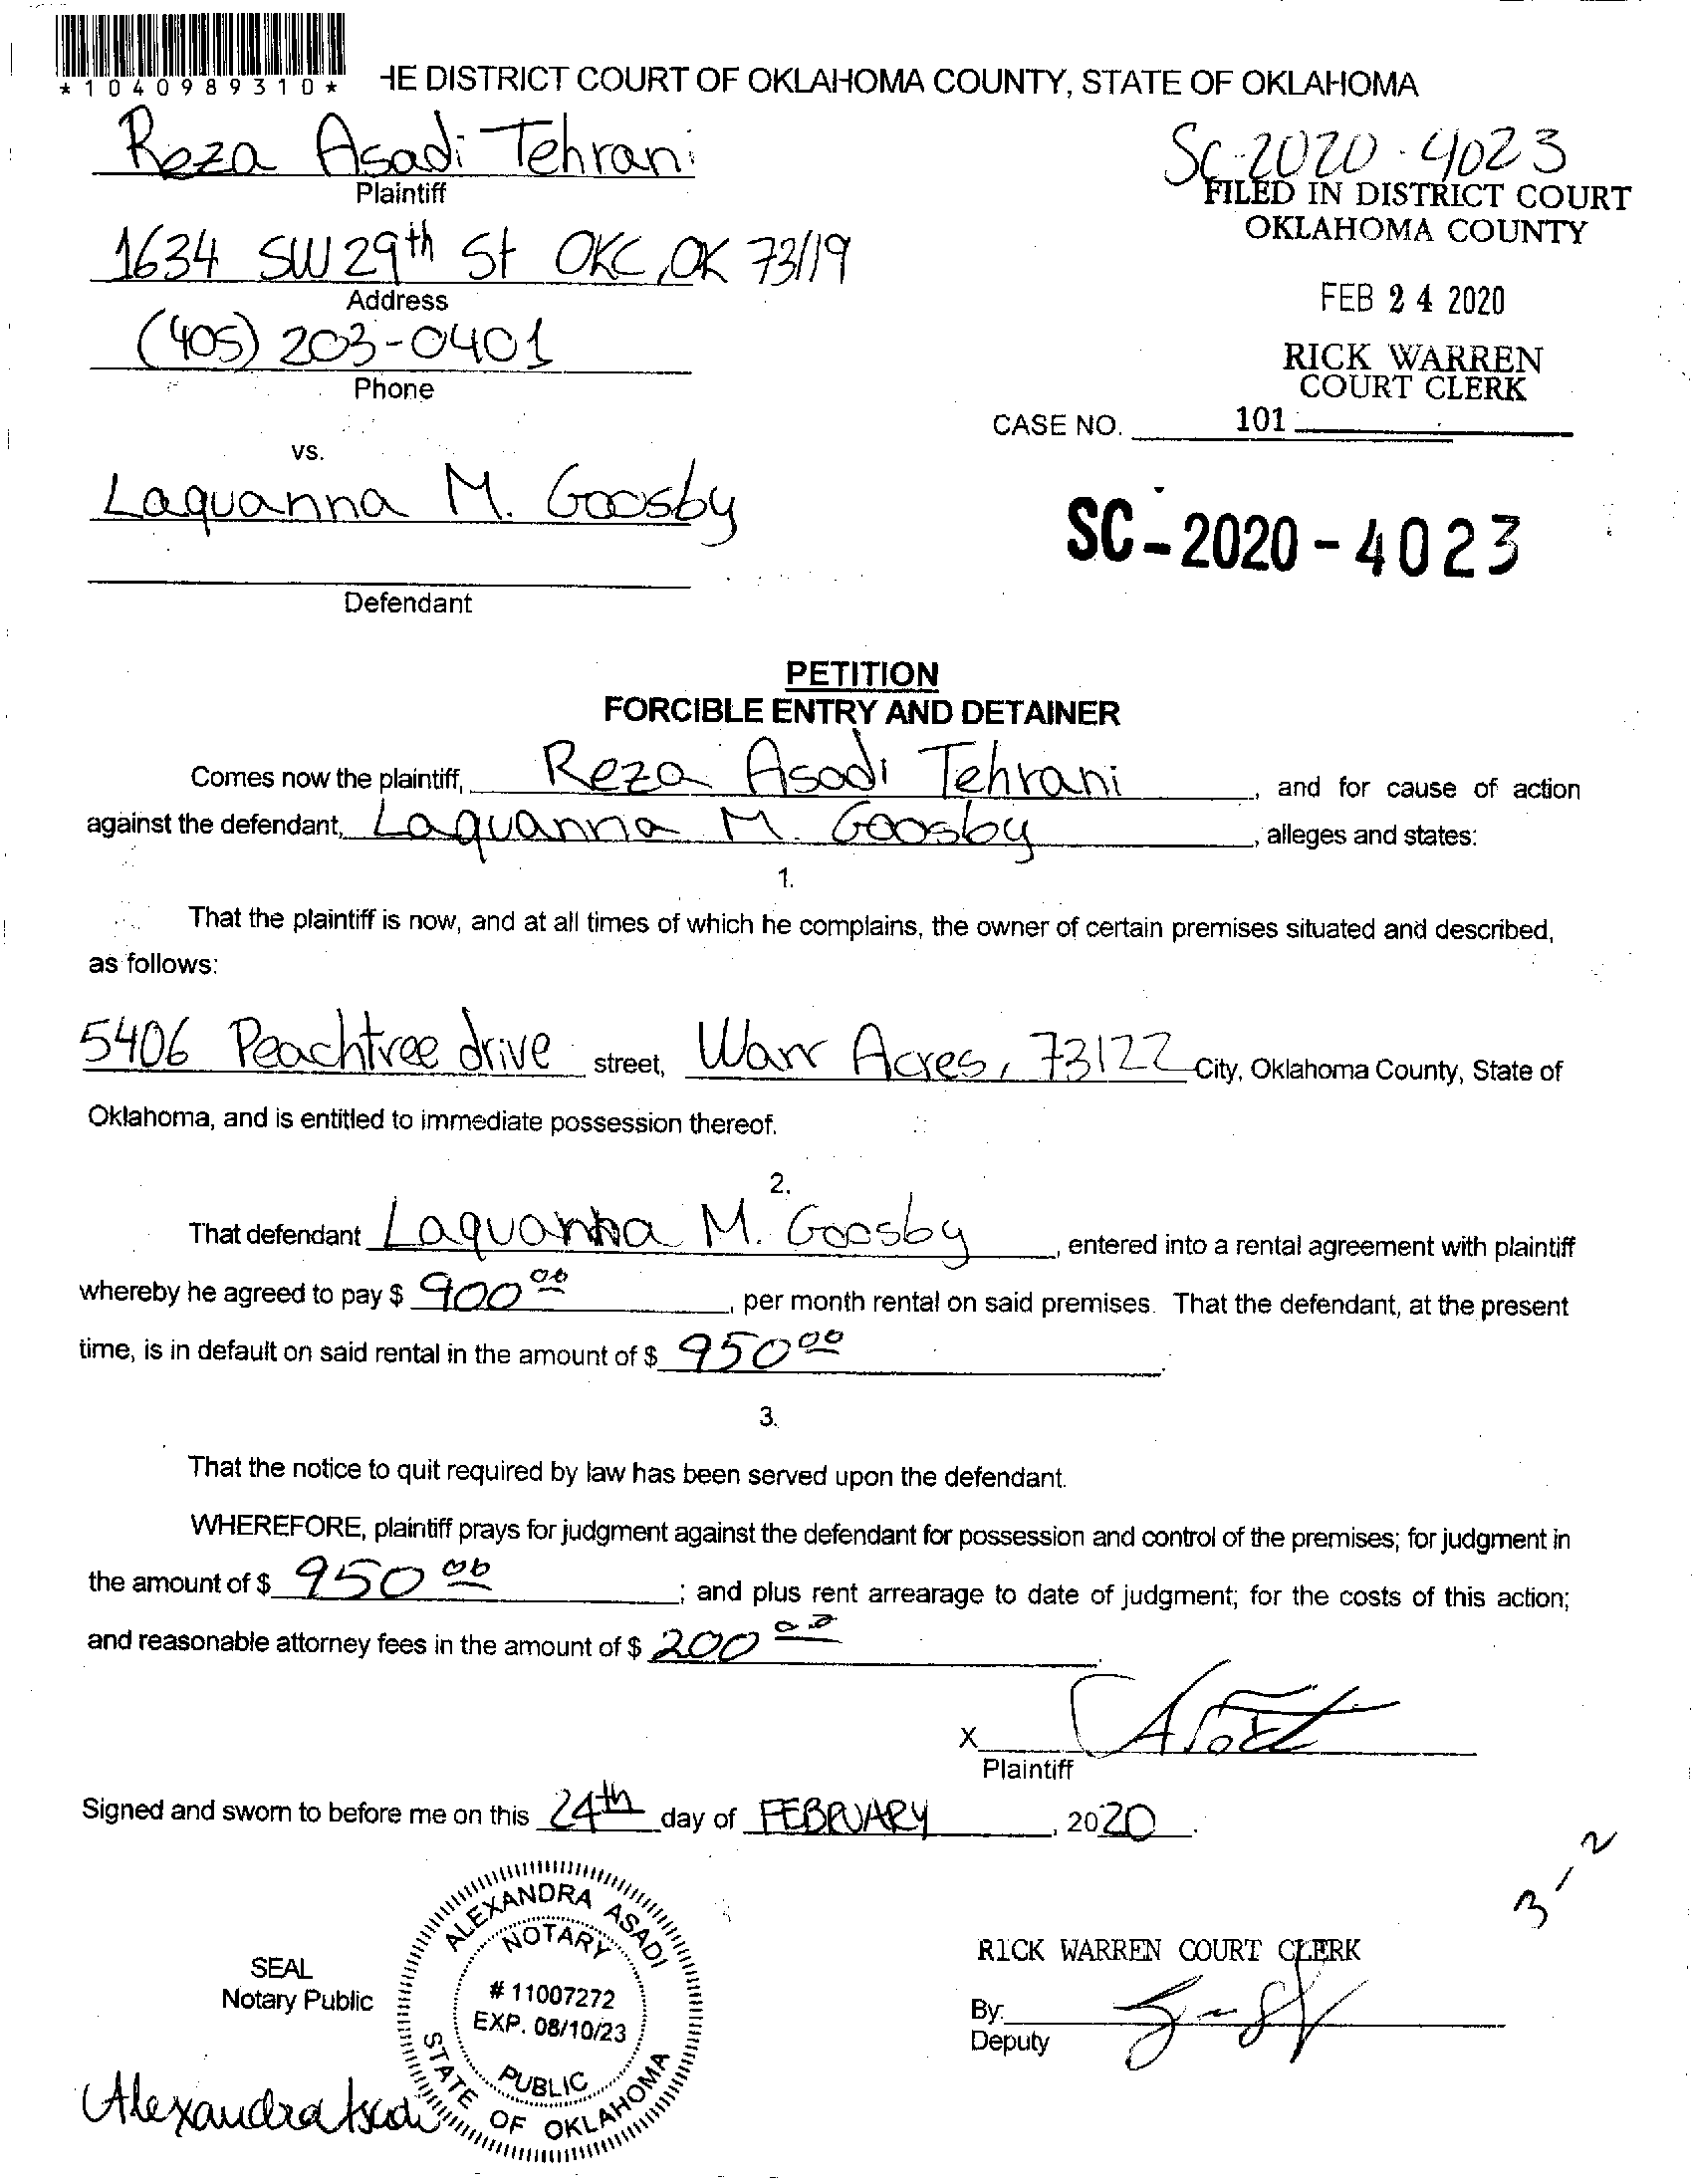 *1040989310*
HE DISTRICT COURT OF OKLAHOMA COUNTY, STATE OF OKLAHOMA
Reza Asadi Tehrani
Plaintiff
SC-2020-4023
FILED IN DISTRICT COURT
OKLAHOMA COUNTY
1634 SW 29th St OKC, OK 73119
Address
FEB 24 2020
(405) 203-0401
Phone
RICK WARREN
COURT CLERK
CASE NO. 101
vs.
Laquanna M. Goosby
SC-2020-4023
Defendant
PETITION
FORCIBLE ENTRY AND DETAINER
Comes now the plaintiff, Reza Asadi Tehrani, and for cause of action
against the defendant, Laquanna M. Goosby, alleges and states:
1.
That the plaintiff is now, and at all times of which he complains, the owner of certain premises situated and described,
as follows:
5406 Peachtree drive street, Warr Acres, 73122 City, Oklahoma County, State of
Oklahoma, and is entitled to immediate possession thereof.
2.
That defendant Laquanna M. Goosby, entered into a rental agreement with plaintiff
whereby he agreed to pay $ 900 00, per month rental on said premises. That the defendant, at the present
time, is in default on said rental in the amount of $ 950 00.
3.
That the notice to quit required by law has been served upon the defendant.
WHEREFORE, plaintiff prays for judgment against the defendant for possession and control of the premises; for judgment in
the amount of $ 950 00; and plus rent arrearage to date of judgment; for the costs of this action;
and reasonable attorney fees in the amount of $ 200 00.
X
Plaintiff
Signed and sworn to before me on this 24th day of FEBRUARY, 2020.
3-2
ALEXANDRA ASADI
NOTARY
# 11007272
EXP. 08/10/23
PUBLIC
STATE OF OKLAHOMA
SEAL
Notary Public
RICK WARREN COURT CLERK
By:
Deputy
Alexandra Asadi